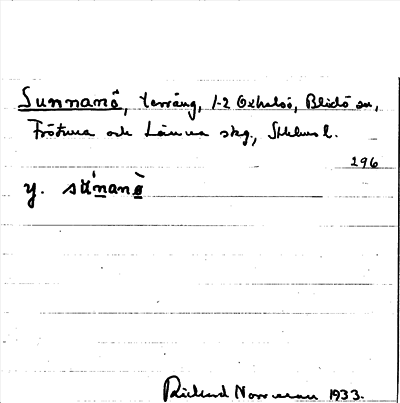 Sunnanö, terräng, 1-2 Oxhalsö, Blidö sn,
Frötuna och Länna skg., Sthlms l.
296
y. sʉ́nanö̀
Rickard Norrman 1933.